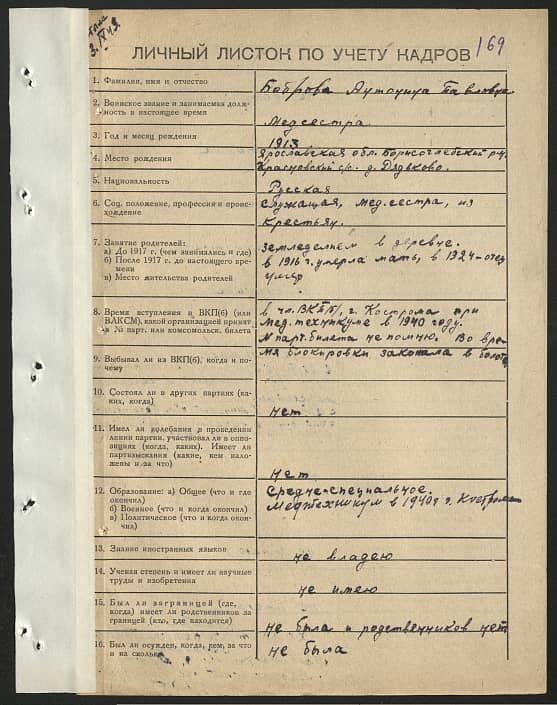 3.IX 43
169
ЛИЧНЫЙ ЛИСТОК ПО УЧЕТУ КАДРОВ
1. Фамилия, имя и отчество
Боброва Антонина Павловна
2. Воинское звание и занимаемая долж-
ность в настоящее время
Медсестра
3. Год и месяц рождения
1913
4. Место рождения
Ярославская обл. Борисоглебский р-н,
Красновский с/с. д. Дядьково.
5. Национальность
Русская
6. Соц. положение, профессия и проис-
хождение
Служащая, мед.сестра, из
крестьян.
7. Занятие родителей:
а) До 1917 г. (чем занимались и где)
б) После 1917 г. до настоящего вре-
мени
в) Место жительства родителей
Земледелием в деревне.
в 1916 г. умерла мать, в 1924 - отец
умер
8. Время вступления в ВКП(б) (или
ВЛКСМ), какой организацией принят
и № парт. или комсомольск. билета
в чл. ВКП/б/, г. Кострома при
Мед. техникуме в 1940 году.
N парт. билета не помню. Во вре-
мя блокировки закопала в болоте
9. Выбывал ли из ВКП(б), когда и по-
чему
10. Состоял ли в других партиях (ка-
ких, когда)
нет
11. Имел ли колебания в проведении
линии партии, участвовал ли в оппо-
зициях (когда, каких). Имеет ли
партвзыскания (какие, кем нало-
жены и за что)
нет
12. Образование: а) Общее (что и где
окончил)
б) Военное (что и когда окончил)
в) Политическое (что и когда окон-
чил)
Средне-специальное.
Медтехникум в 1940 г г. Кострома
13. Знание иностранных языков
не владею
14. Ученая степень и имеет ли научные
труды и изобретения
не имею
15. Был ли заграницей (где,
когда) имеет ли родственников за
границей (кто, где находятся)
не была и родственников нет
16. Был ли осужден, когда, кем, за что
и на сколько
не была